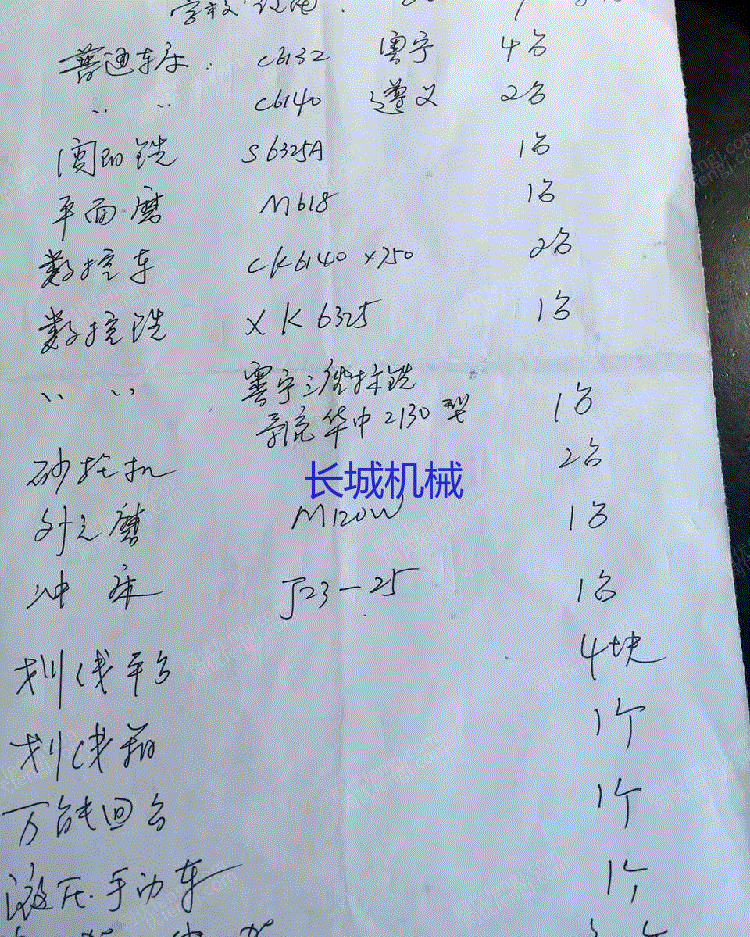 普通车床 C6132 云宁 4台
〃 〃 C6140 遵义 2台
S6325A 1台
平面磨 M618 1台
数控车 CK6140×750 2台
数控铣 XK6325 1台
〃 〃
华中2130型 1台
砂轮机 2台
长城机械
外元磨 M120W 1台
冲床 J23-25 1台
划线平台 4块
划线 1个
万能回台 1个
液压手动车 1个